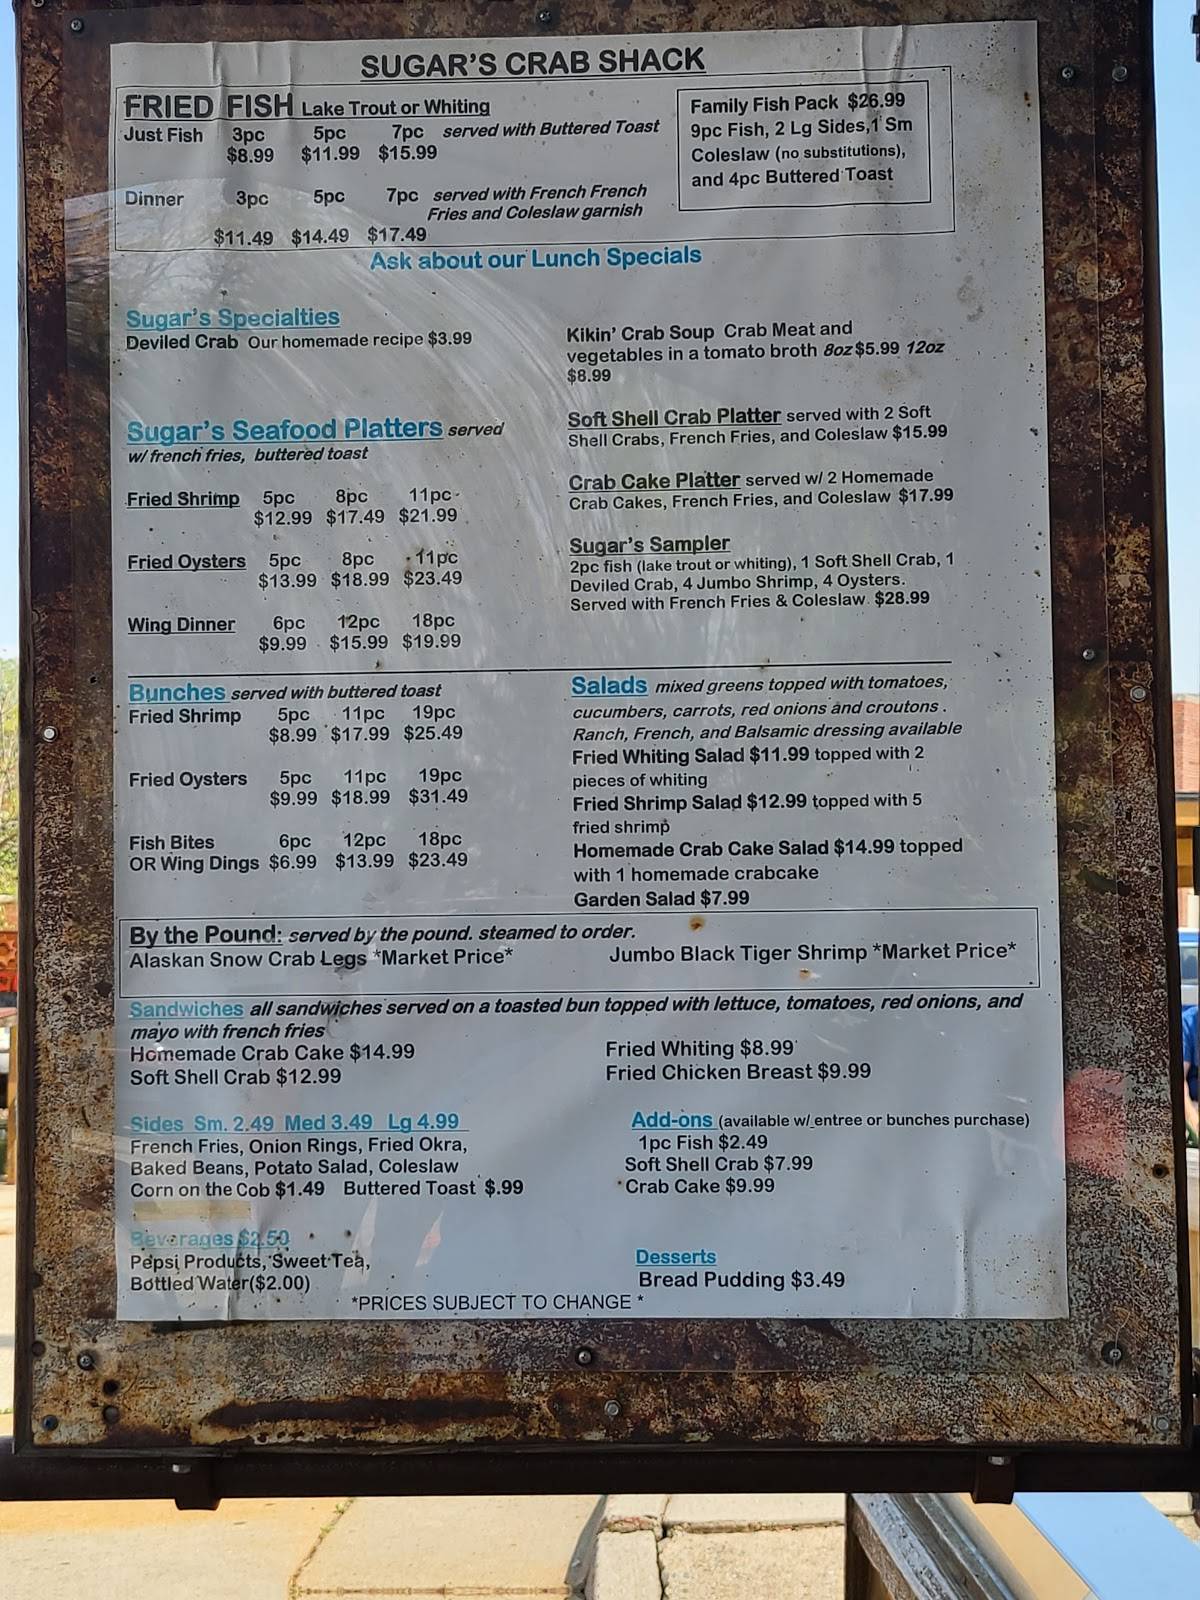 SUGAR'S CRAB SHACK
FRIED FISH Lake Trout or Whiting
Just Fish 3pc 5pc 7pc served with Buttered Toast
$8.99 $11.99 $15.99
Dinner 3pc 5pc 7pc served with French French
Fries and Coleslaw garnish
$11.49 $14.49 $17.49
Family Fish Pack $26.99
9pc Fish, 2 Lg Sides,1 Sm
Coleslaw (no substitutions),
and 4pc Buttered Toast
Ask about our Lunch Specials
Sugar's Specialties
Deviled Crab Our homemade recipe $3.99
Kikin' Crab Soup Crab Meat and
vegetables in a tomato broth 8oz $5.99 12oz
$8.99
Sugar's Seafood Platters served
w/ french fries, buttered toast
Fried Shrimp 5pc 8pc 11pc
$12.99 $17.49 $21.99
Fried Oysters 5pc 8pc 11pc
$13.99 $18.99 $23.49
Wing Dinner 6pc 12pc 18pc
$9.99 $15.99 $19.99
Soft Shell Crab Platter served with 2 Soft
Shell Crabs, French Fries, and Coleslaw $15.99
Crab Cake Platter served w/ 2 Homemade
Crab Cakes, French Fries, and Coleslaw $17.99
Sugar's Sampler
2pc fish (lake trout or whiting), 1 Soft Shell Crab, 1
Deviled Crab, 4 Jumbo Shrimp, 4 Oysters.
Served with French Fries & Coleslaw $28.99
Bunches served with buttered toast
Fried Shrimp 5pc 11pc 19pc
$8.99 $17.99 $25.49
Fried Oysters 5pc 11pc 19pc
$9.99 $18.99 $31.49
Fish Bites 6pc 12pc 18pc
OR Wing Dings $6.99 $13.99 $23.49
Salads mixed greens topped with tomatoes,
cucumbers, carrots, red onions and croutons .
Ranch, French, and Balsamic dressing available
Fried Whiting Salad $11.99 topped with 2
pieces of whiting
Fried Shrimp Salad $12.99 topped with 5
fried shrimp
Homemade Crab Cake Salad $14.99 topped
with 1 homemade crabcake
Garden Salad $7.99
By the Pound: served by the pound. steamed to order.
Alaskan Snow Crab Legs *Market Price* Jumbo Black Tiger Shrimp *Market Price*
Sandwiches all sandwiches served on a toasted bun topped with lettuce, tomatoes, red onions, and
mayo with french fries
Homemade Crab Cake $14.99 Fried Whiting $8.99
Soft Shell Crab $12.99 Fried Chicken Breast $9.99
Sides Sm. 2.49 Med 3.49 Lg 4.99
French Fries, Onion Rings, Fried Okra,
Baked Beans, Potato Salad, Coleslaw
Corn on the Cob $1.49 Buttered Toast $.99
Add-ons (available w/ entree or bunches purchase)
1pc Fish $2.49
Soft Shell Crab $7.99
Crab Cake $9.99
Beverages $2.50
Pepsi Products, Sweet Tea,
Bottled Water($2.00)
Desserts
Bread Pudding $3.49
*PRICES SUBJECT TO CHANGE *